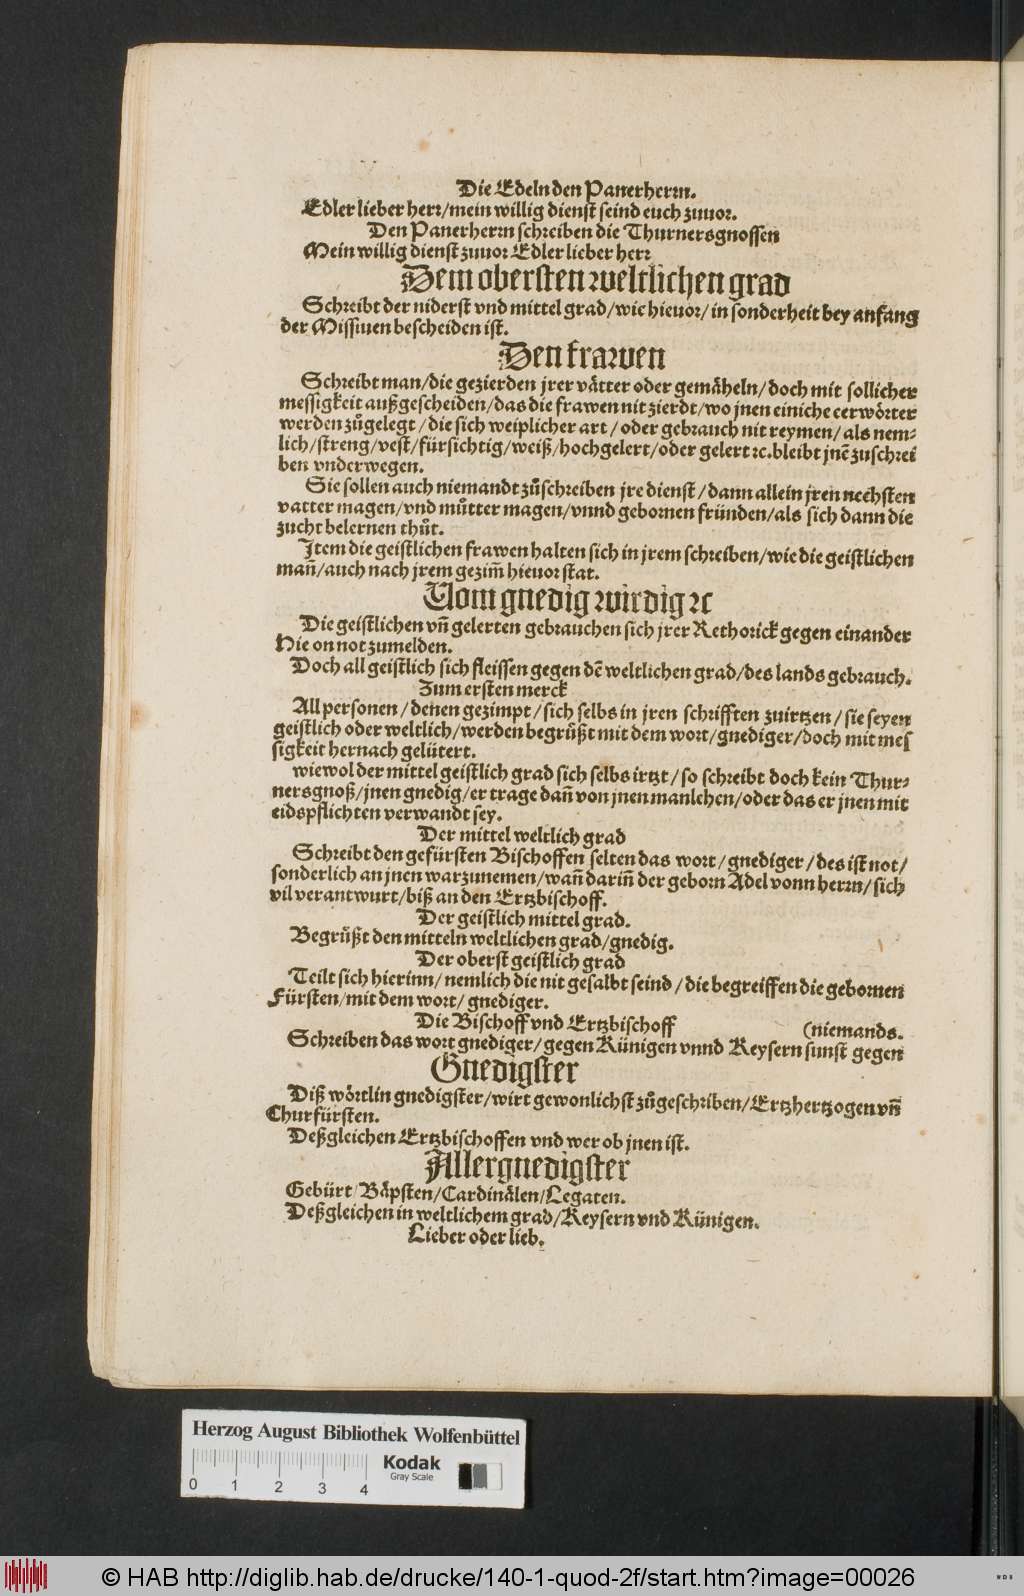 Die Edeln den Panerherrn.
Edler lieber herr/mein willig dienst seind euch zuuor.
Den Panerherrn schreiben die Thurnersgnossen
Mein willig dienst zuuor Edler lieber herr
Dem obersten weltlichen grad
Schreibt der niderst vnd mittel grad/wie hieuor/in sonderheit bey anfang
der Missiuen bescheiden ist.
Den frawen
Schreibt man/die gezierden jrer vätter oder gemäheln/doch mit sollicher
messigkeit außgescheiden/das die frawen nit zierdt/wo jnen einiche eerwörter
werden zůgelegt/die sich weiplicher art/oder gebrauch nit reymen/als nem-
lich/streng/vest/fürsichtig/weiß/hochgelert/oder gelert ꝛc.bleibt jnē zuschrei
ben vnderwegen.
Sie sollen auch niemandt zůschreiben jre dienst/dann allein jren nechsten
vatter magen/vnd můtter magen/vnnd gebornen fründen/als sich dann die
zucht belernen thůt.
Item die geistlichen frawen halten sich in jrem schreiben/wie die geistlichen
mañ/auch nach jrem gezim̃ hieuor stat.
Vom gnedig wirdig ꝛc
Die geistlichen vñ gelerten gebrauchen sich jrer Rethorick gegen einander
Hie on not zumelden.
Doch all geistlich sich fleissen gegen dē weltlichen grad/des lands gebrauch.
Zum ersten merck
All personen/denen gezimpt/sich selbs in jren schrifften zuirtzen/sie seyen
geistlich oder weltlich/werden begrůßt mit dem wort/gnediger/doch mit mes
sigkeit hernach gelütert.
wiewol der mittel geistlich grad sich selbs irtzt/so schreibt doch kein Thur-
nersgnoß/jnen gnedig/er trage dañ von jnen manlehen/oder das er jnen mit
eidspflichten verwandt sey.
Der mittel weltlich grad
Schreibt den gefürsten Bischoffen selten das wort/gnediger/des ist not/
sonderlich an jnen warzunemen/wañ dariñ der geborn Adel vonn herrn/sich
vil verantwurt/biß an den Ertzbischoff.
Der geistlich mittel grad.
Begrůßt den mitteln weltlichen grad/gnedig.
Der oberst geistlich grad
Teilt sich hierinn/nemlich die nit gesalbt seind/die begreiffen die gebornen
Fürsten/mit dem wort/gnediger.
Die Bischoff vnd Ertzbischoff (niemands.
Schreiben das wort gnediger/gegen Künigen vnnd Keysern sunst gegen
Gnedigster
Diß wörtlin gnedigster/wirt gewonlichst zůgeschriben/Ertzhertzogen vñ
Churfürsten.
Deßgleichen Ertzbischoffen vnd wer ob jnen ist.
Allergnedigster
Gebürt/Bäpsten/Cardinälen/Legaten.
Deßgleichen in weltlichem grad/Keysern vnd Künigen.
Lieber oder lieb.
Herzog August Bibliothek Wolfenbüttel
Kodak
Gray Scale
0 1 2 3 4
© HAB http://diglib.hab.de/drucke/140-1-quod-2f/start.htm?image=00026